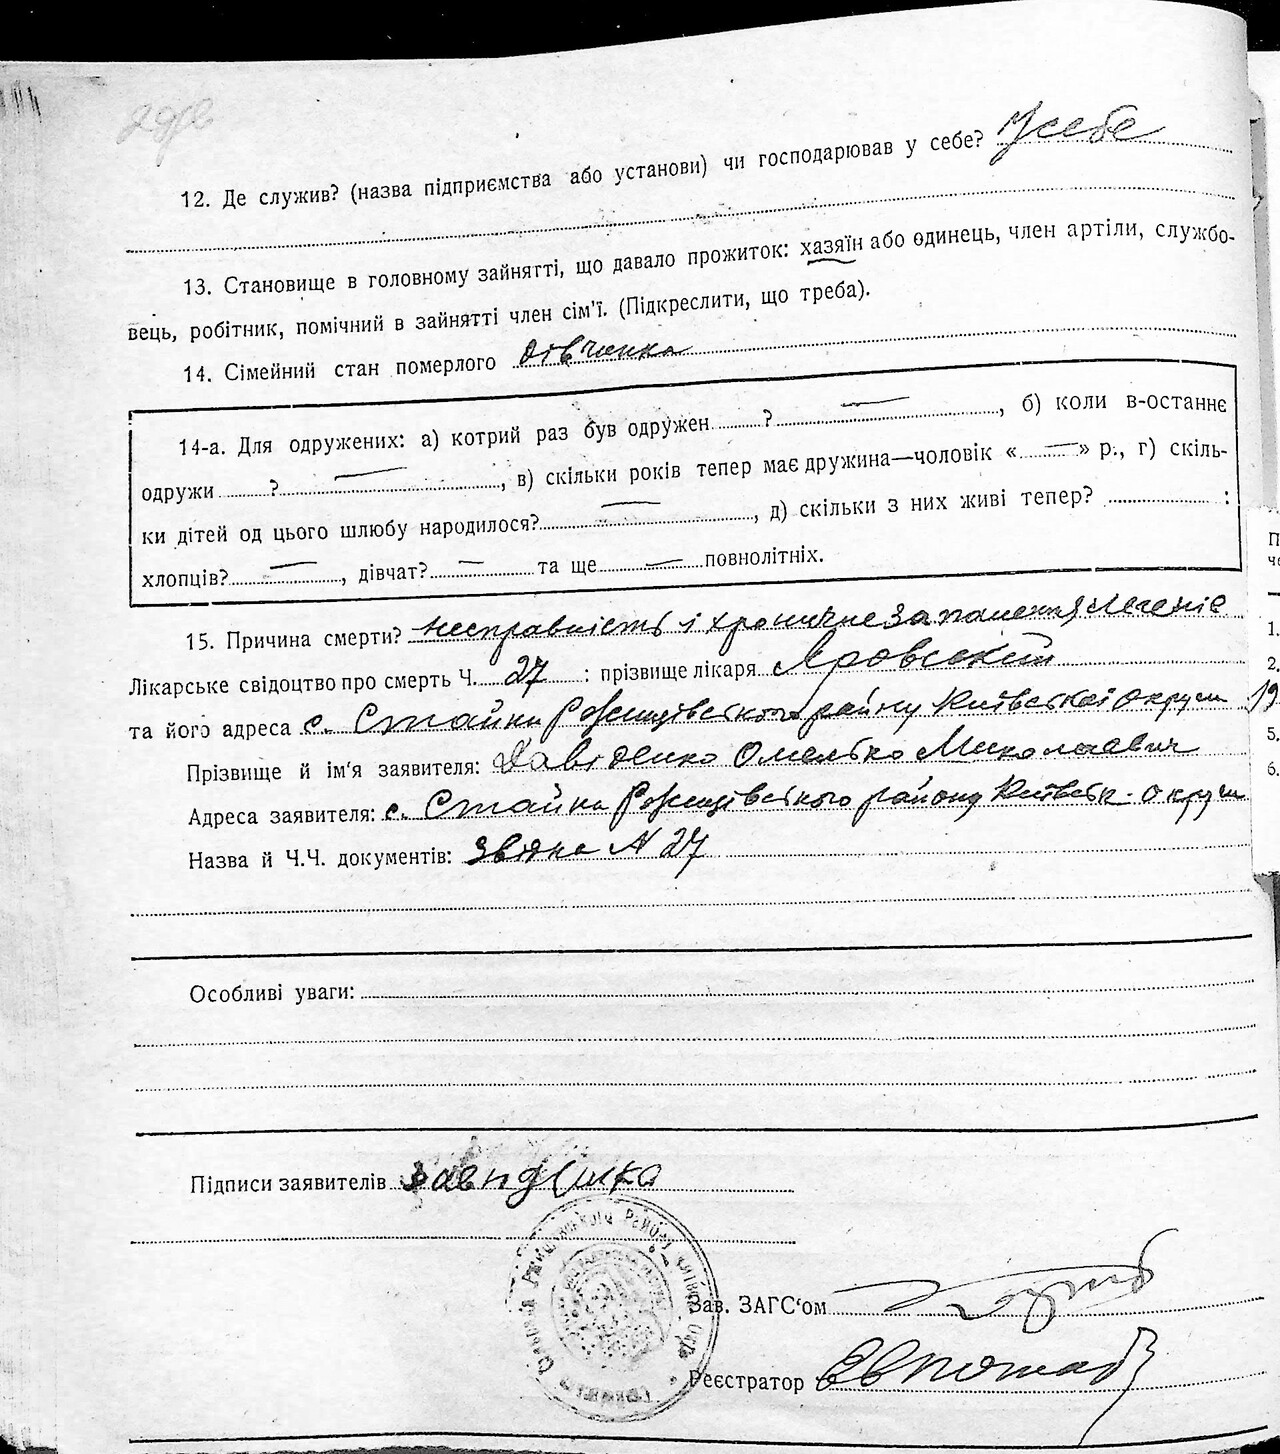 12. Де служив? (назва підприємства або установи) чи господарював у себе? У себе
13. Становище в головному зайнятті, що давало прожиток: хазяїн або одинець, член артіли, службо-
вець, робітник, помічний в зайнятті член сім'ї. (Підкреслити, що треба).
14. Сімейний стан померлого дівчинка
14-а. Для одружених: а) котрий раз був одружен ? —, б) коли в-останнє
одружи ? —, в) скільки років тепер має дружина—чоловік « — » р., г) скіль-
ки дітей од цього шлюбу народилося? —, д) скільки з них живі тепер? :
хлопців? —, дівчат? — та ще — повнолітніх.
15. Причина смерти? несправність і хроничне запалення легенів
Лікарське свідоцтво про смерть Ч. 27 : прізвище лікаря Яровський
та його адреса с. Стайки Ржищівського району Київської округи
Прізвище й ім'я заявителя: Давіденко Омелько Миколаєвич
Адреса заявителя: с. Стайки Ржищівського району Київськ. округи
Назва й Ч.Ч. документів: Звідка № 27
Особливі уваги:
Підписи заявителів
Зав. ЗАГС'ом
Реєстратор
П
че
1.
2.
19
5.
6.